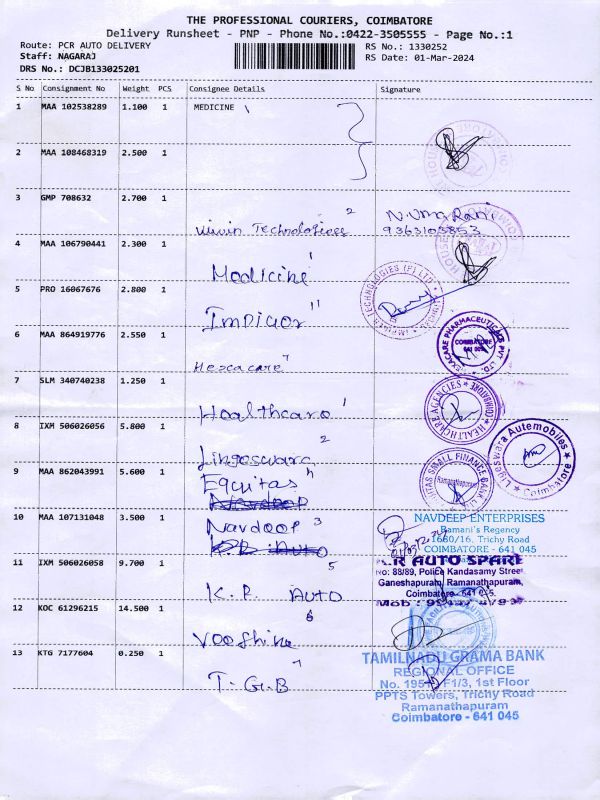 THE PROFESSIONAL COURIERS, COIMBATORE
Delivery Runsheet - PNP - Phone No.:0422-3505555 - Page No.:1
Route: PCR AUTO DELIVERY RS No.: 1330252
Staff: NAGARAJ RS Date: 01-Mar-2024
DRS No.: DCJB133025201
S No Consignment No Weight PCS Consignee Details Signature
1 MAA 102538289 1.100 1 MEDICINE
2 MAA 108468319 2.500 1
3 GMP 708632 2.700 1
2 N. Uma Rani
Vivin Technologies 9363103853
4 MAA 106790441 2.300 1
Medicine
5 PRO 16067676 2.800 1
TECHNOLOGIES (P) LTD
Impigor
6 MAA 864919776 2.550 1
HEXACARE PHARMACEUTICALS PVT. LTD.
COIMBATORE
641 005
Hexacare
7 SLM 340740238 1.250 1
HEALTHCARE AGENCIES
COIMBATORE
Healthcare
8 IXM 506026056 5.800 1
2
Lingeswara
Lingeswara Automobiles
Coimbatore
9 MAA 862043991 5.600 1
Equitas
EQUITAS SMALL FINANCE BANK
Ramanathapuram
Navdeep
10 MAA 107131048 3.500 1
Navdeep 3
NAVDEEP ENTERPRISES
Ramani's Regency
1680/16, Trichy Road
COIMBATORE - 641 045
K.P. Auto
11 IXM 506026058 9.700 1
5
K. P. AUTO
PCR AUTO SPARE
No: 88/89, Police Kandasamy Street
Ganeshapuram, Ramanathapuram,
Coimbatore - 641 045.
12 KOC 61296215 14.500 1
6
13 KTG 7177604 0.250 1
T. G. B
TAMILNADU GRAMA BANK
REGIONAL OFFICE
No. 195 F1/3, 1st Floor
PPTS Towers, Trichy Road
Ramanathapuram
Coimbatore - 641 045